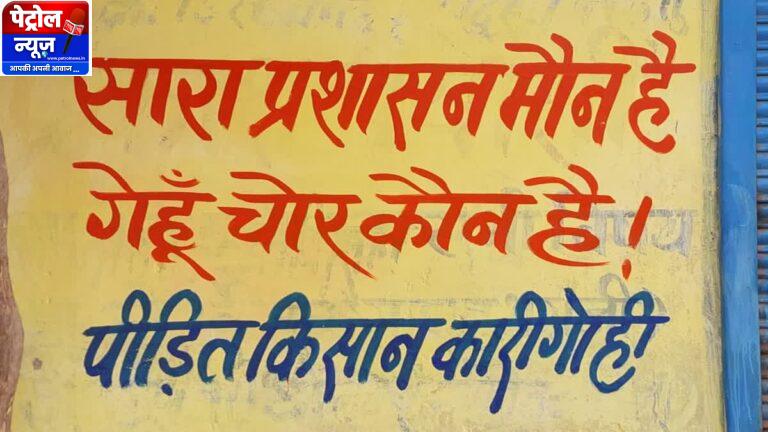 पेट्रोल
न्यूज़
www.patrolnews.in
आपकी अपनी आवाज ...
सारा प्रशासन मौन है
गेहूँ चोर कौन है!
पीड़ित किसान कारीगोही